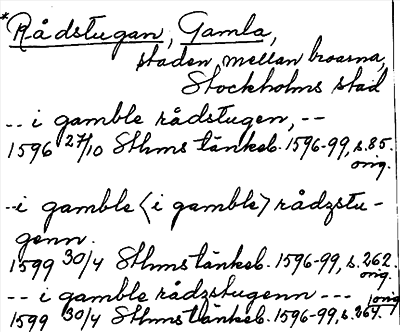 *Rådstugan, Gamla,
staden mellan broarna,
Stockholms stad
-- i gamble rådstugen, --
1596 27/10 Sthms tänkeb. 1596-99, s. 85.
orig.
-- i gamble <i gamble> rådzstu-
genn.
1599 30/4 Sthms tänkeb. 1596-99, s. 262.
orig.
-- i gamble rådzstugenn ---
1599 30/4 Sthms tänkeb. 1596-99, s. 267. orig.